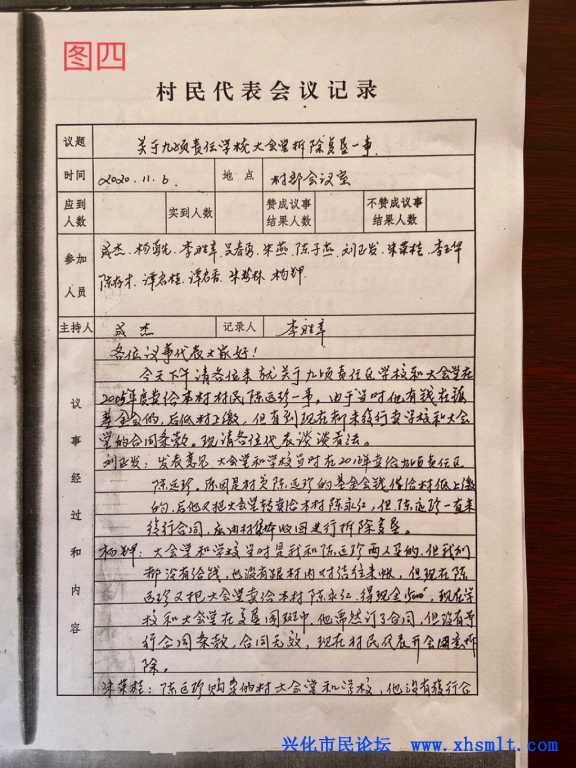 图四
村民代表会议记录
议题 关于九顷责任学校大会堂拆除复垦一事
时间 2020.11.6 地点 村部会议室
应到人数 实到人数 赞成议事结果人数 不赞成议事结果人数
参加人员 成杰、李胜章、吴春勇、朱燕、陈子燕、刘正发、朱荣桂、李玉华
陈存才、谭启桂、谭启香、朱梦林、杨钾
主持人 成杰 记录人 李胜章
议事经过和内容
各位议事代表大家好!
今天下午请各位来就关于九顷责任区学校和大会堂在
2005年度卖给本村村民陈远珍一事,由于当时他有钱在该
基金会的,后低村上缴,但直到现在都未移行卖学校和大会
堂的合同条款。现请各位代表谈谈看法。
刘正发:发表意见,大会堂和学校当时在2005年卖给九顷责任区
陈远珍,原因是村欠陈远珍的基金会钱保给村低上缴
的,后他又把大会堂转卖给本村陈永红,但陈远珍一直未
移行合同,应由村集体收回进行拆除复垦。
杨钾:大会堂和学校当时是我和陈远珍两人买的,但我们
都没有给钱,也没有跟村内对结往来帐,但现在陈
远珍又把大会堂卖给本村陈永红,得现金1500元,现在学
校和大会堂在复垦图斑中,他虽然订了合同,但没有导
行合同条款,合同无效,现在村民代表开会同意拆
除。
朱荣桂:陈远珍购买的村大会堂和学校,他没有移行合
兴化市民论坛 www.xhsmlt.com